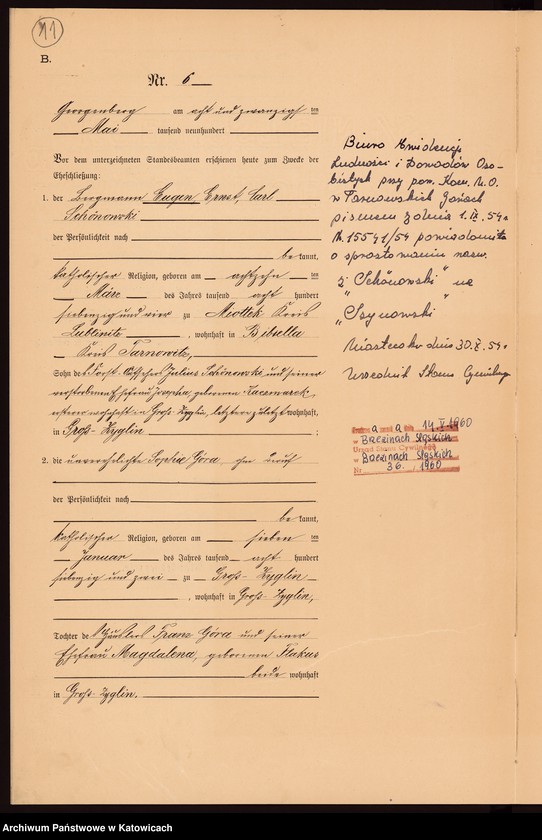 11
B.
Nr. 6
Georgenberg am acht und zwanzigsten
Mai tausend neunhundert
Vor dem unterzeichneten Standesbeamten erschienen heute zum Zwecke der
Eheschließung:
1. der Bergmann Eugen Ernst, Carl
Schönowski
der Persönlichkeit nach
bekannt,
katholischer Religion, geboren am achtzehnten
März des Jahres tausend acht hundert
siebenzig und vier zu Miottek Kreis
Lublinitz, wohnhaft in Bibiella
Kreis Tarnowitz,
Sohn des Julius Schönowski und seiner
verstorbenen Ehefrau Josepha, geborenen Kaczmarek,
ersterer wohnhaft in Groß-Zyglin, letztere zuletzt wohnhaft,
in Groß-Zyglin ;
2. die unverehelichte Sophia Góra, ohne Beruf
der Persönlichkeit nach
bekannt,
katholischer Religion, geboren am siebenten
Januar des Jahres tausend acht hundert
siebenzig und zwei zu Groß-Zyglin
, wohnhaft in Groß-Zyglin,
Tochter des Häuslers Franz Góra und seiner
Ehefrau Magdalena, geborenen Flakus
beide wohnhaft
in Groß-Zyglin.
Biuro Ewidencji
Ludności i Dowodów Oso-
bistych przy pow. Kom. M.O.
w Tarnowskich Górach
pismem z dnia 1. IX. 54 r
N. 15541/54 powiadomiło
o sprostowaniu nazw.
z "Schönowski" na
"Szynowski"
Miasteczko dnia 30. X. 54 r
Urzędnik Stanu Cywilnego
14 V 1960
w Brzezinach Śląskich
Urząd Stanu Cywilnego
w Brzezinach Śląskich
Nr 36. / 1960
Archiwum Państwowe w Katowicach